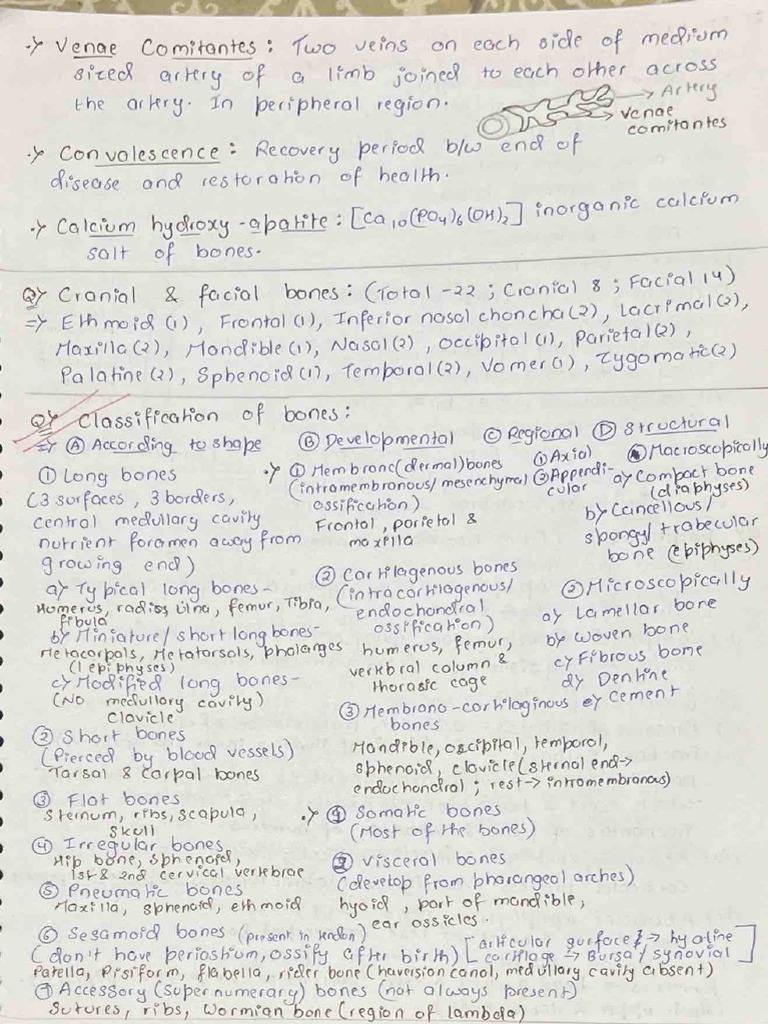 ·y Venae Comitantes : Two veins on each side of medium
sized artery of a limb joined to each other across
the artery. In peripheral region.
→ Artery
→ Venae
comitantes
·y Convalescence : Recovery period b/w end of
disease and restoration of health.
·y Calcium hydroxy-apatite : [Ca10(PO4)6(OH)2] inorganic calcium
salt of bones.
Q) Cranial & facial bones : (Total - 22 ; Cranial 8 ; Facial 14)
=> Ethmoid (1), Frontal (1), Inferior nasal choncha (2), Lacrimal (2),
Maxilla (2), Mandible (1), Nasal (2), Occipital (1), Parietal (2),
Palatine (2), Sphenoid (1), Temporal (2), Vomer (1), Zygomatic (2)
Q) Classification of bones :
=> Ⓐ According to shape
① Long bones
(3 surfaces, 3 borders,
central medullary cavity
nutrient foramen away from
growing end)
a) Typical long bones -
Humerus, radius, Ulna, femur, Tibia,
fibula
b) Miniature/ short long bones -
Metacarpals, Metatarsals, phalanges
(1 epiphyses)
c) Modified long bones -
(No medullary cavity)
Clavicle
② Short bones
(Pierced by blood vessels)
Tarsal & Carpal bones
③ Flat bones
Sternum, ribs, scapula,
Skull
④ Irregular bones
Hip bone, sphenoid,
1st & 2nd cervical vertebrae
⑤ Pneumatic bones
Maxilla, sphenoid, ethmoid
Ⓑ Developmental
·y ① Membrane (dermal) bones
(intramembronous/ mesenchymal
ossification)
Frontal, parietal &
maxilla
② Cartilagenous bones
(intracartilagenous/
endochondral
ossification)
humerus, femur,
vertebral column &
thorasic cage
③ Membrano-cartilaginous
bones
Mandible, occipital, temporal,
sphenoid, clavicle (sternal end →
endochondral ; rest → intramembranous)
·y ① Somatic bones
(Most of the bones)
② Visceral bones
(develop from pharangeal arches)
hyoid, part of mandible,
ear ossicles.
Ⓒ Regional
① Axial
② Appendi-
cular
Ⓓ Structural
① Macroscopically
a) Compact bone
(diaphyses)
b) Cancellous/
spongy/ trabecular
bone (epiphyses)
② Microscopically
a) Lamellar bone
b) Woven bone
c) Fibrous bone
d) Dentine
e) Cement
⑥ Sesamoid bones (present in tendon)
(don't have periostium, ossify after birth) [articular surface → hyaline
cartilage → Bursa/ synovial]
Patella, Pisiform, flabella, rider bone (haversion canal, medullary cavity absent)
⑦ Accessory (super numerary) bones (not always present)
Sutures, ribs, Wormian bone (region of lambda)